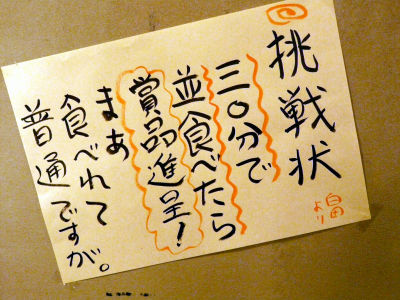 挑戦状
三〇分で
並食べたら
賞品進呈!
まあ
食べれて
普通ですが。
より